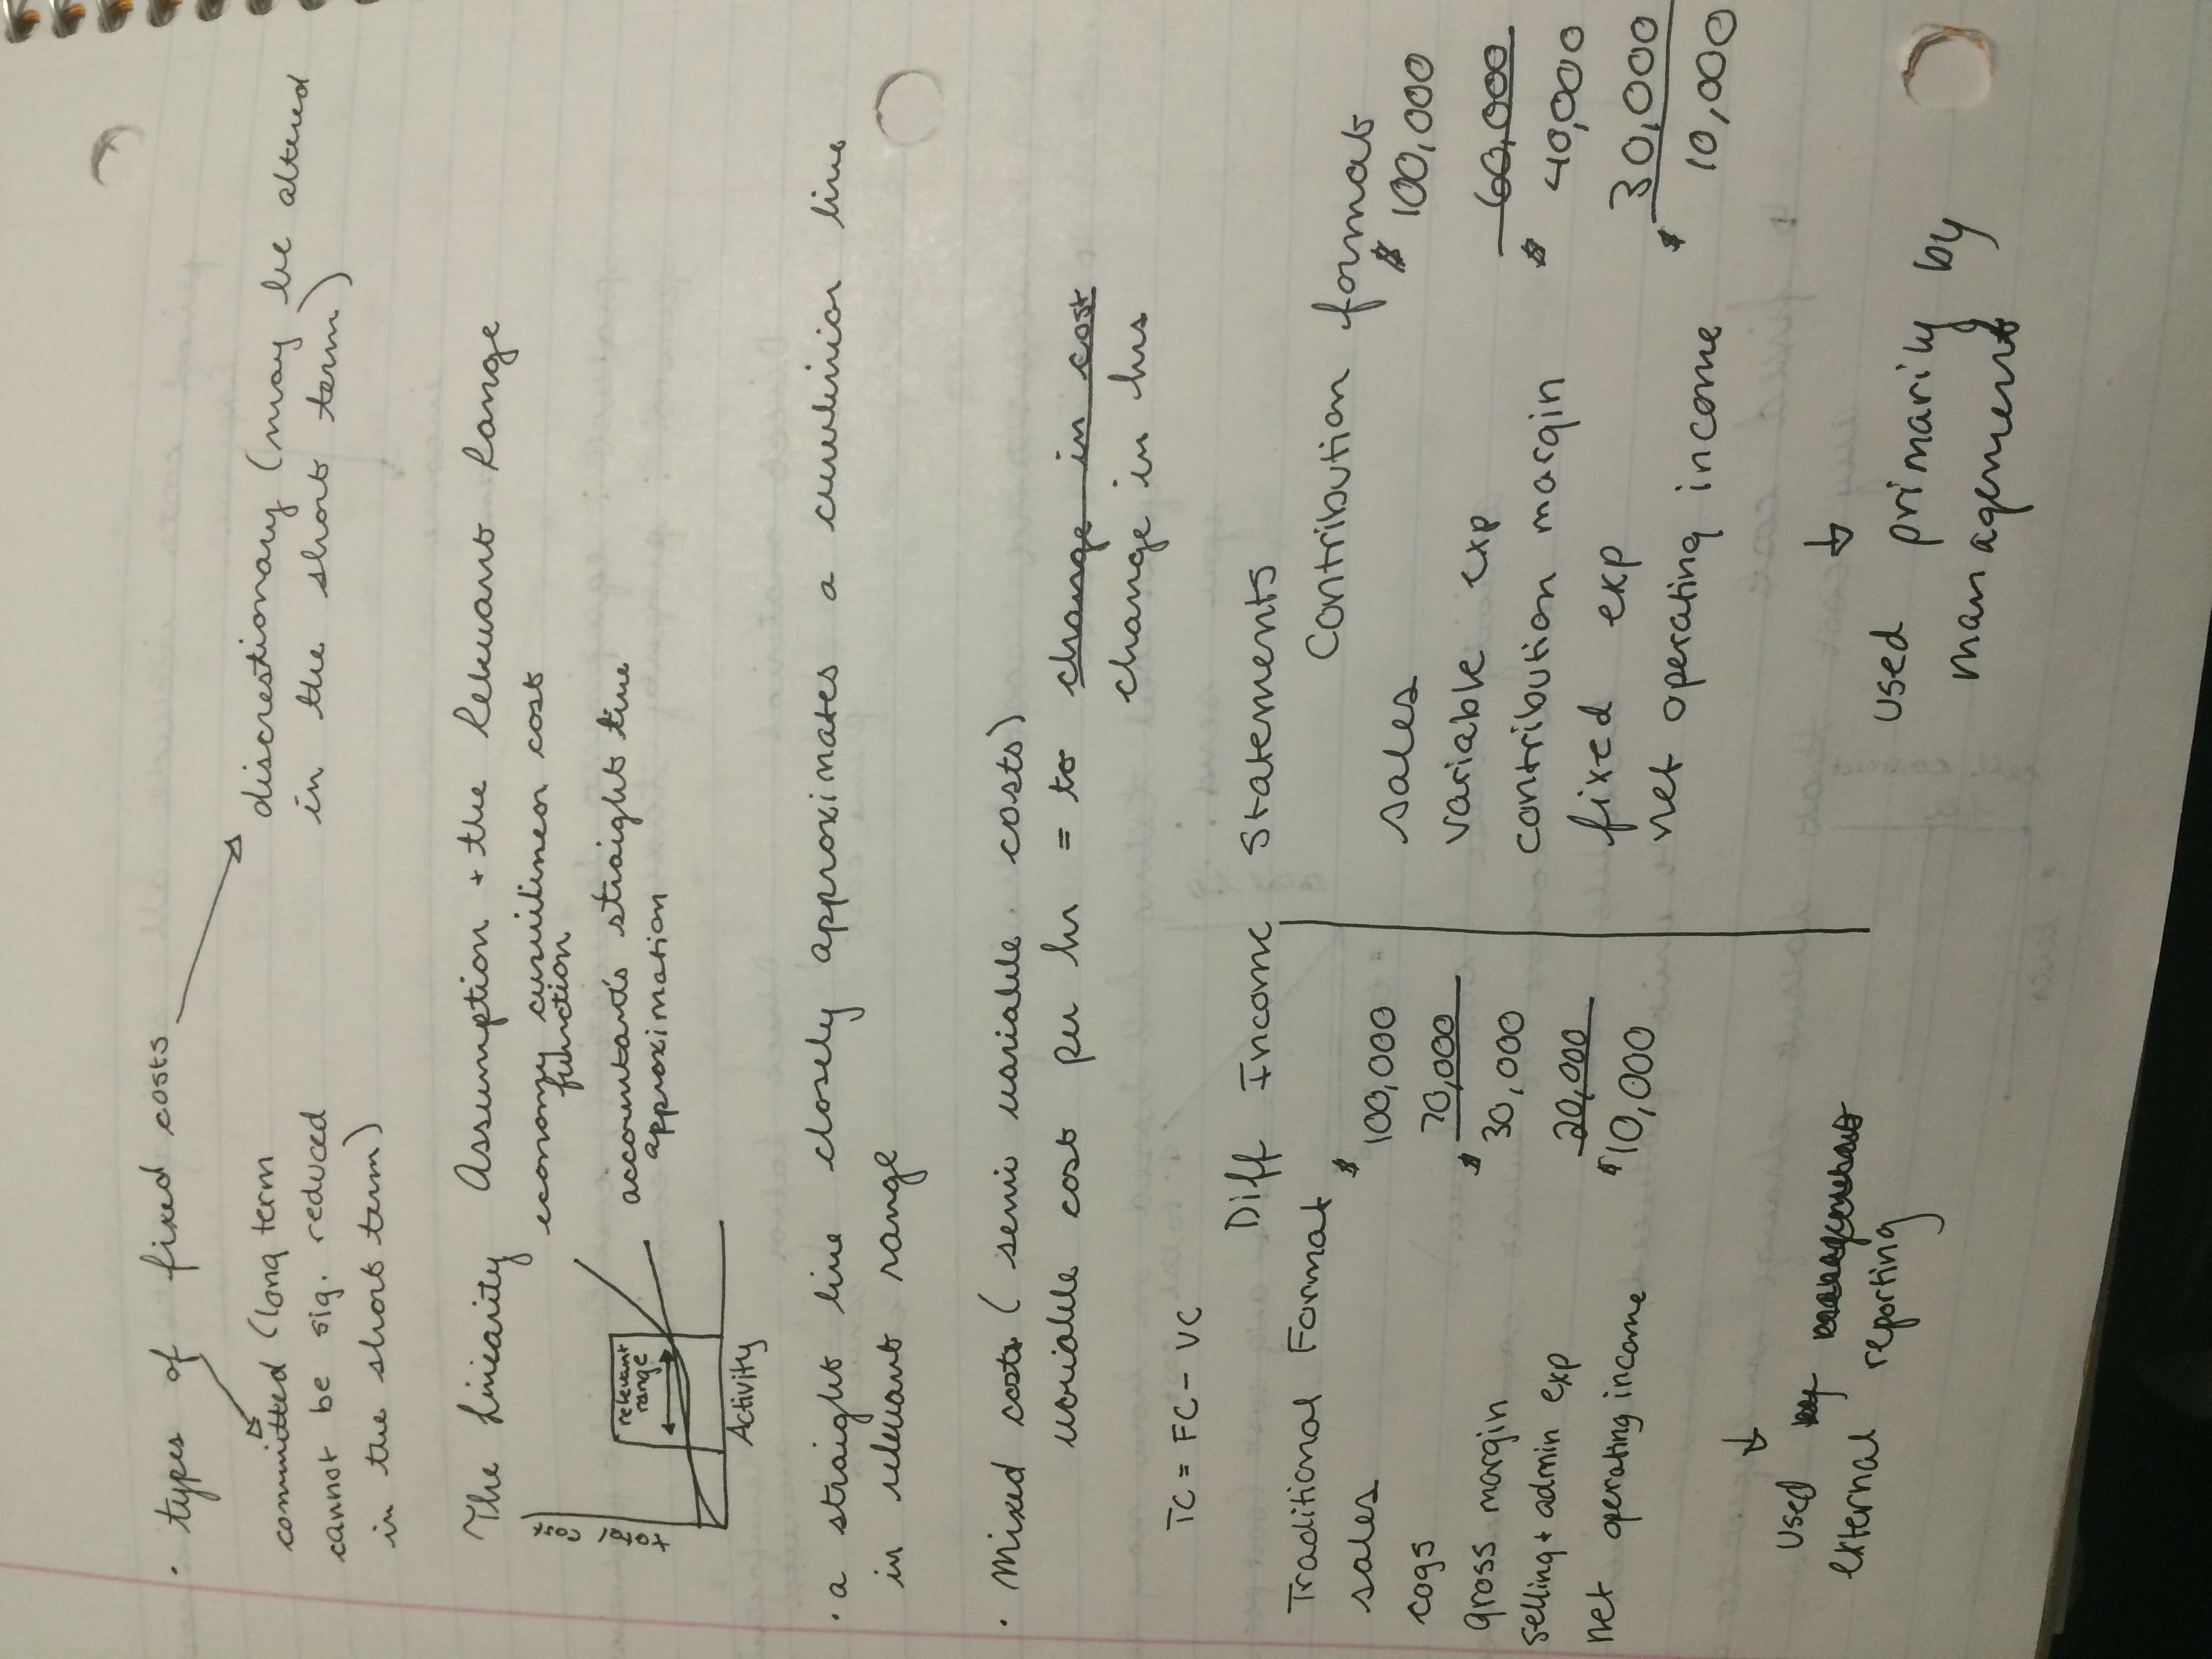 · types of fixed costs
committed (long term
cannot be sig. reduced
in the short term)
discrestionary (may be altered
in the short term)
The Linearity Assumption + the Relevant Range
economy curvilinear cost
function
accountant's straight line
approximation
total cost
relevant
range
Activity
· a straight line closely approximates a curvilinior line
in relevant range
· Mixed costs (semi variable costs)
variable cost per hr = to change in cost
change in hrs
TC = FC - VC
Diff Income Statements
Traditional Format
sales $ 100,000
cogs 70,000
gross margin $ 30,000
selling + admin exp 20,000
net operating income $10,000
↓
used
external reporting
Contribution format
sales $ 100,000
variable exp 60,000
contribution margin $ 40,000
fixed exp 30,000
net operating income $ 10,000
↓
used primarily by
management